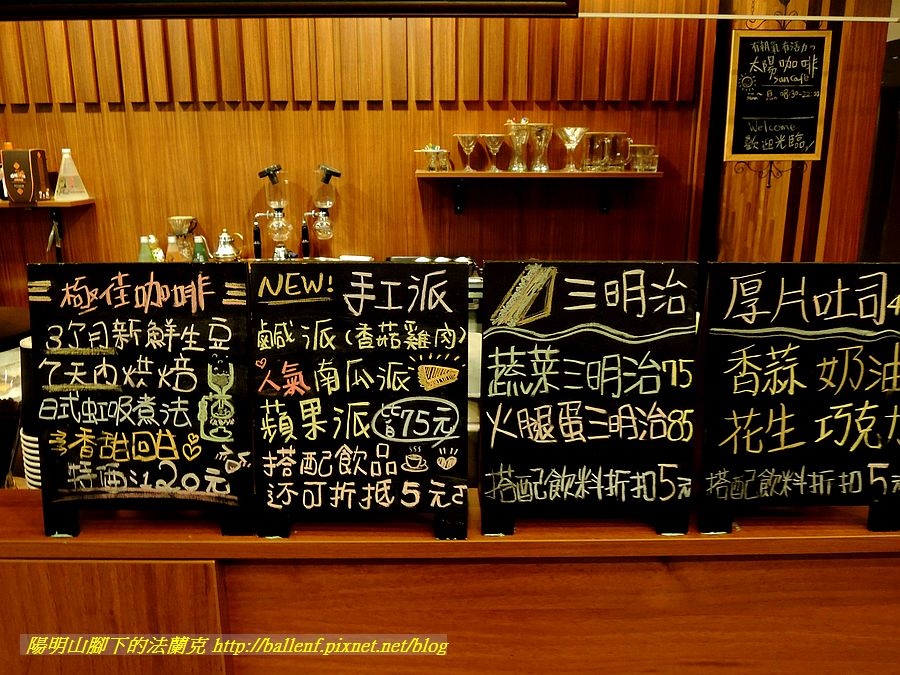 有朝氣有活力
太陽咖啡
Sun Café
08:30-22:00
Welcome
歡迎光臨
極佳咖啡
3个月新鮮生豆
7天內烘焙
日式虹吸煮法
香甜回甘
特価 120元
NEW! 手工派
鹹派(香菇雞肉)
人氣南瓜派
蘋果派 皆75元
搭配飲品
还可折抵5元
三明治
蔬菜三明治75
火腿蛋三明治85
搭配飲料折扣5元
厚片吐司4
香蒜 奶油
花生 巧克力
搭配飲料折扣5元
陽明山腳下的法蘭克 http://ballenf.pixnet.net/blog